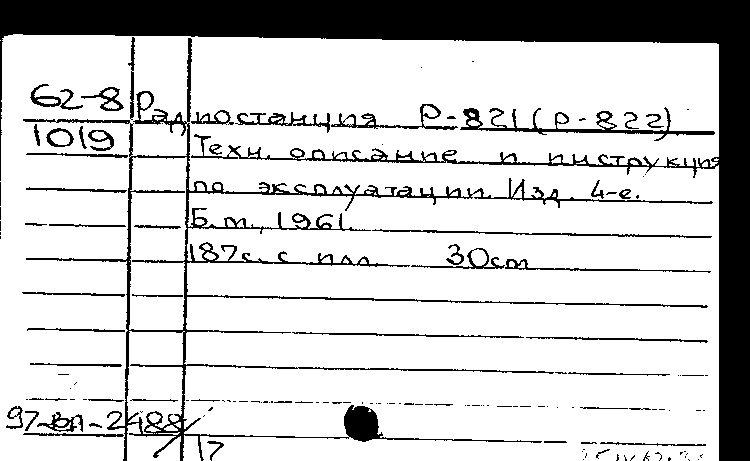 62-8 Радиостанция Р-821 (Р-822)
1019 Техн. описание и инструкция
по эксплуатации. Изд. 4-е.
Б.м., 1961.
187с. с илл. 30cm
97-ВП-2488/17